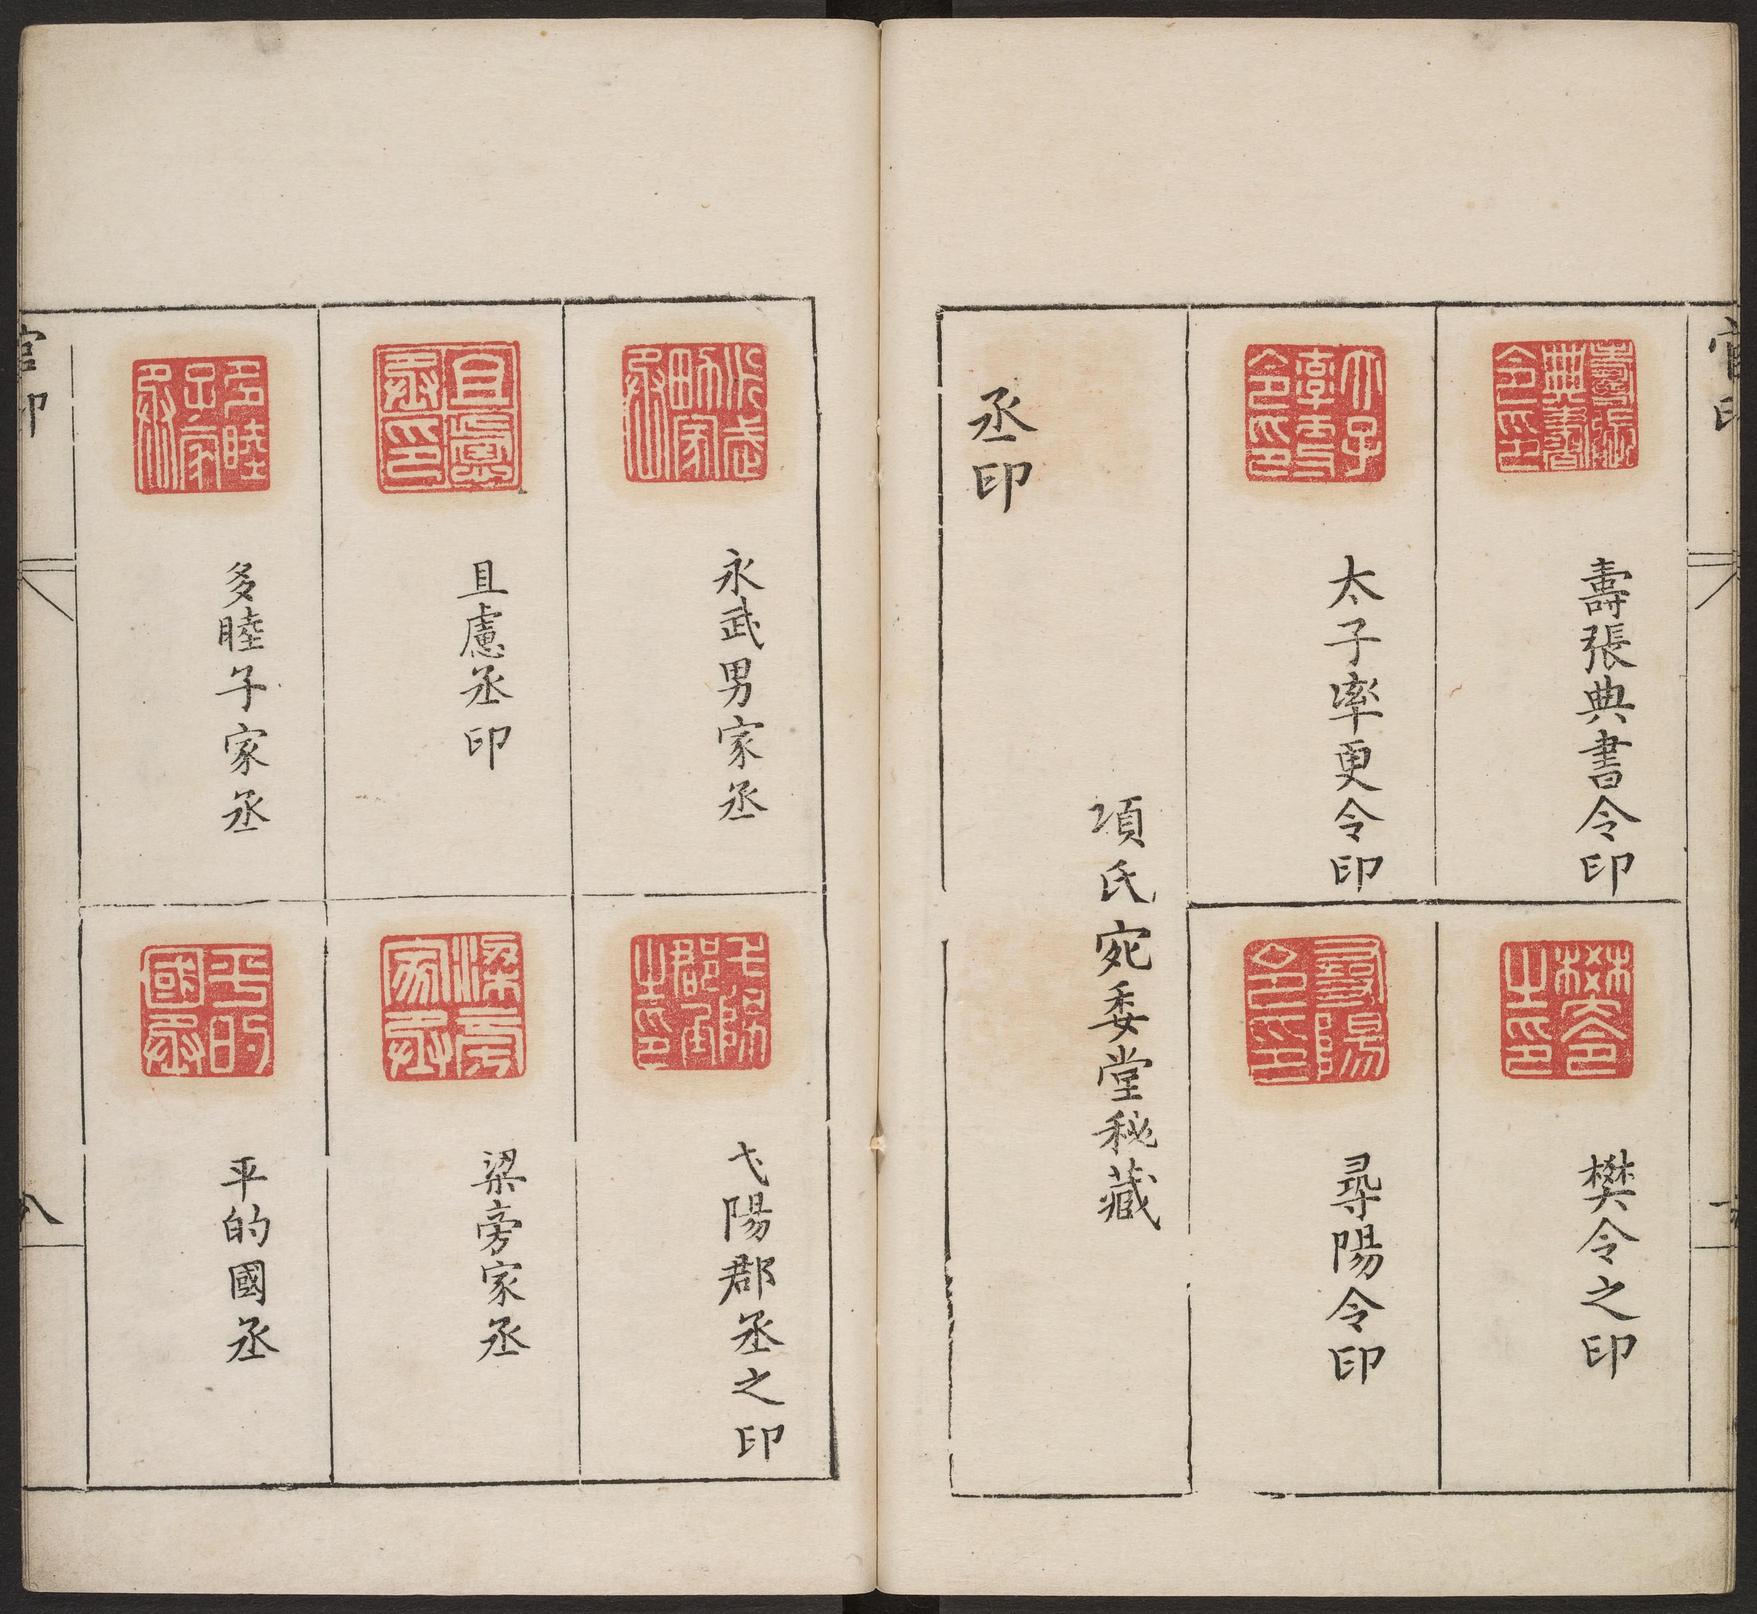 官印
壽張典書令印
樊令之印
太子率更令印
尋陽令印
項氏宛委堂秘藏
丞印
永武男家丞
弋陽郡丞之印
且慮丞印
梁旁家丞
多睦子家丞
平的國丞
官印
八